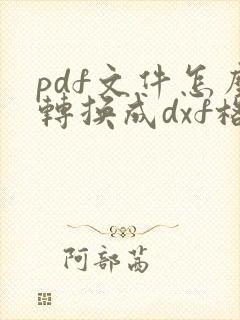 pdf文件怎麼
轉換成dxf格
阿部茜